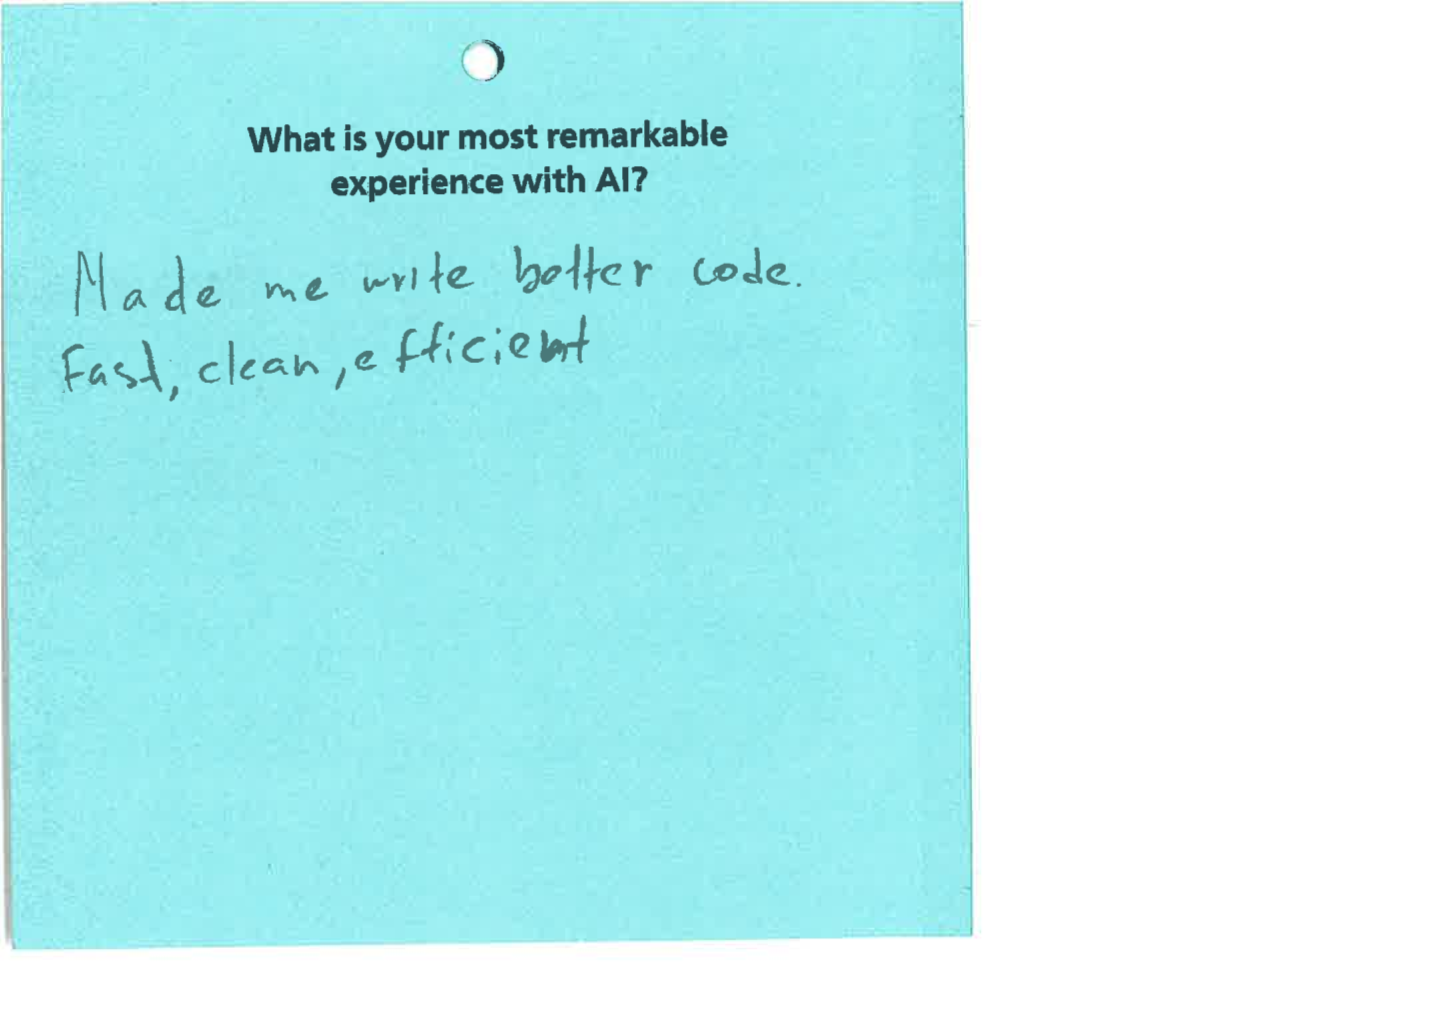 What is your most remarkable
experience with AI?
Made me write better code.
Fast, clean, efficient